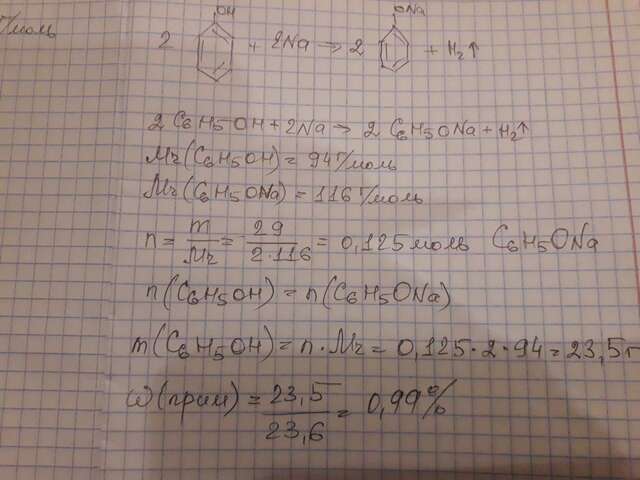 г/моль
OH ONa
2 + 2Na → 2 + H₂↑
2 C₆H₅OH + 2Na → 2 C₆H₅ONa + H₂↑
Mr(C₆H₅OH) = 94 г/моль
Mr(C₆H₅ONa) = 116 г/моль
n = m/Mr = 29/2·116 = 0,125 моль C₆H₅ONa
n(C₆H₅OH) = n(C₆H₅ONa)
m(C₆H₅OH) = n·Mr = 0,125·2·94 = 23,5 г
ω(прим) = 23,5/23,6 = 0,99%